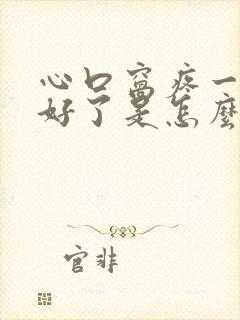 心口窩疼一
好了是怎麼
官非